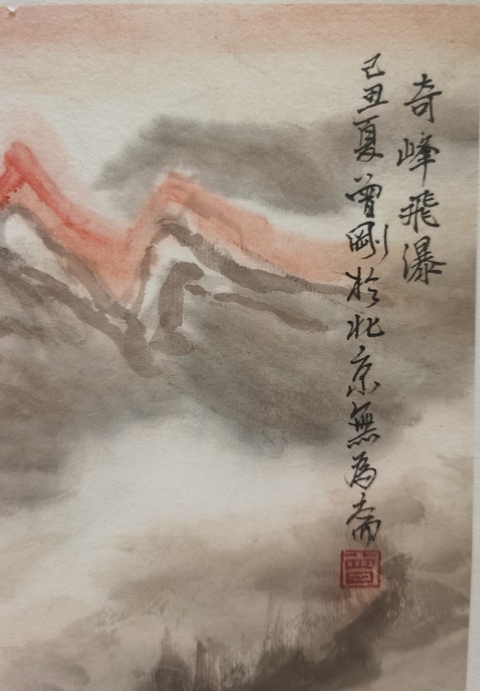 奇峰飛瀑
己丑夏曾剛於北京無為斋
曾